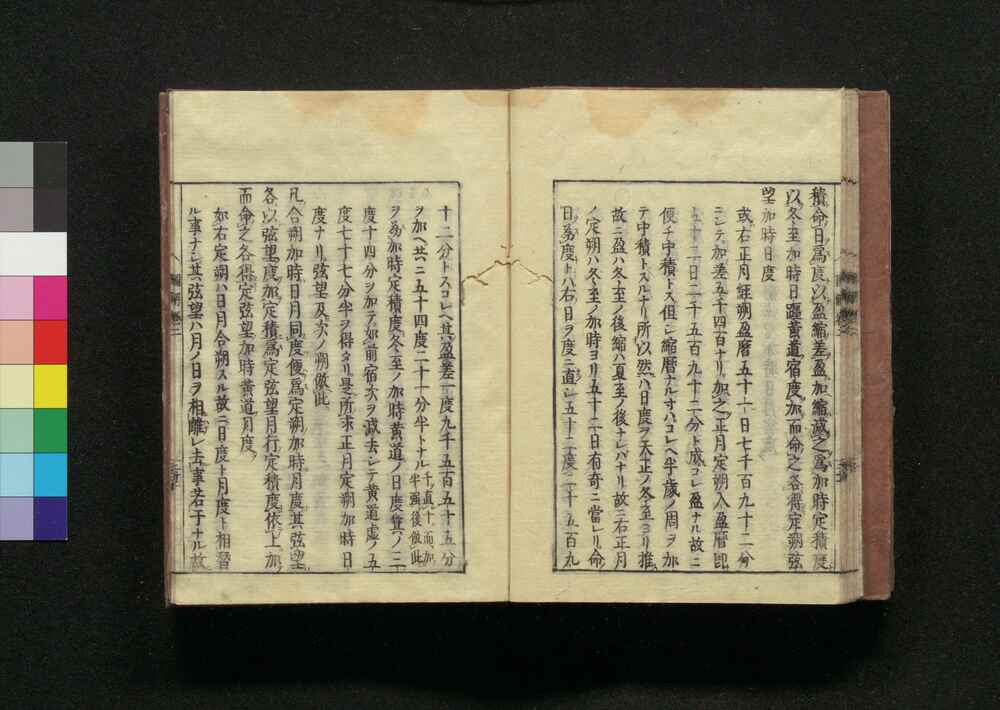 積命日爲度以盈縮差盈加縮減之爲加時定積度
以冬至加時日躔黄道宿度加而命之各得定朔弦
望加時日度
或右正月經朔盈暦五十一日七千百九十二分
ニシテ加差五千四百ナリ加之正月定朔入盈暦即
五十二日二千五百九十二分ト成コレ盈ナル故ニ
便チ中積トス但シ縮暦ナルオハコレヘ半歳ノ周ヲ加
テ中積トスルナリ所以然ハ日度ヲ天正ノ冬至ヨリ推
故ニ盈ハ冬至ノ後縮ハ夏至ノ後ナレバナリ故ニ右正月
ノ定朔ハ冬至ノ加時ヨリ五十二日有奇ニ當レリ命
日爲度トハ右ノ日ヲ度ニ直シ五十二度二十五百九
十二分トスコレヘ其盈差一度九千五百五十五分
ヲ加ヘ共ニ五十四度二十一分半トナル
ヲ爲加時定積度冬至ノ加時黄道ノ日度箕ノ三
度十四分ヲ加テ如前宿次ヲ減去シテ黄道虚ノ五
度七十七分半ヲ得タリ是所求正月定朔加時日
度ナリ弦望及次ノ朔倣此
凡合朔加時日月同度便爲定朔加時月度其弦望
各以弦望度加定積爲定弦望月行定積度依上加
而命之各得定弦望加時黄道月度
如右定朔ハ日月合朔スル故ニ日度ト月度ト相替
ル事ナシ其弦望ハ月ノ日ヲ相離レ去事若干ナル故